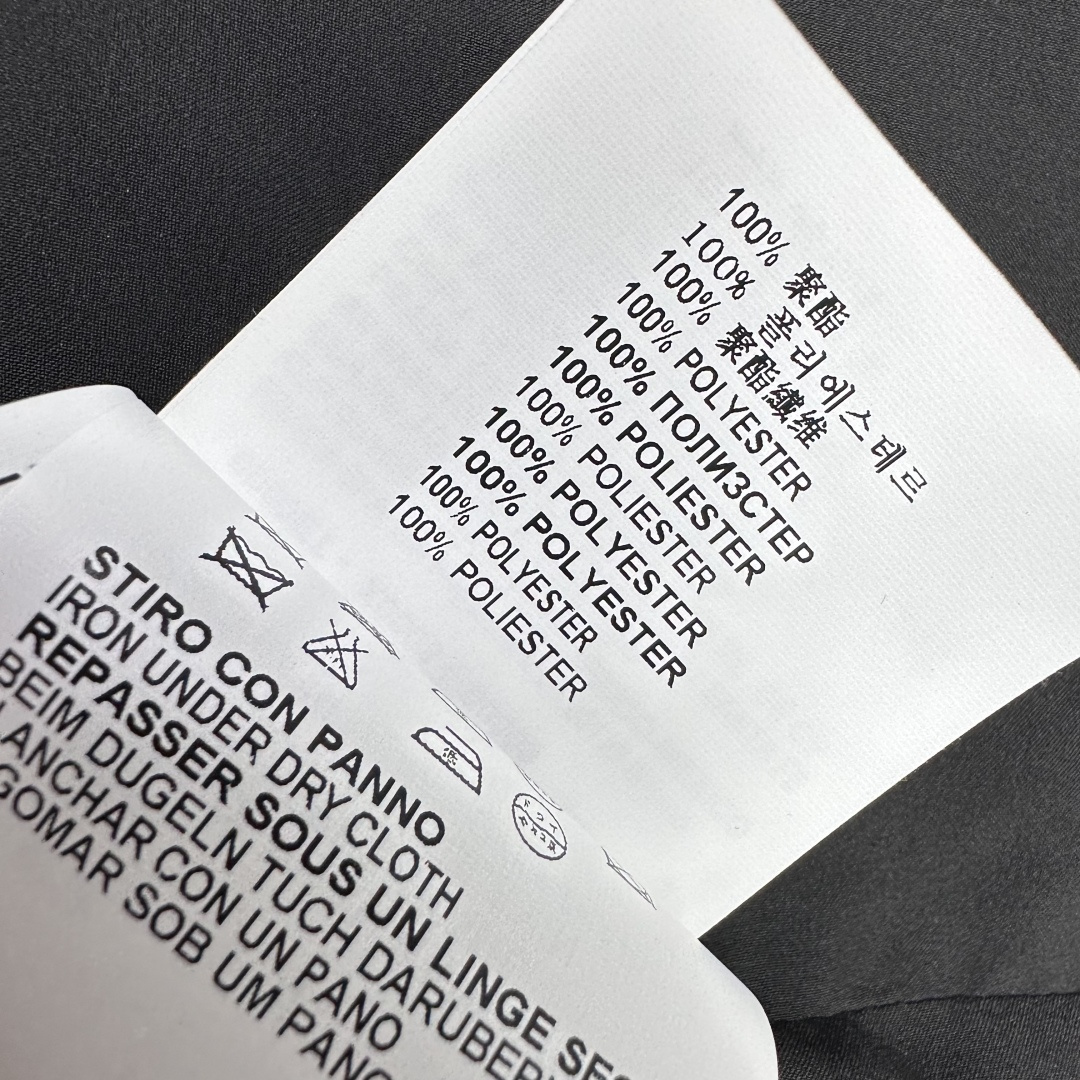 100% 聚酯
100% 폴리에스테르
100% 聚酯纖维
100% POLYESTER
100% ПОЛИЗСТЕР
100% POLIESTER
100% POLIESTER
100% POLYESTER
100% POLYESTER
100% POLYESTER
100% POLIESTER
低
ドライ
STIRO CON PANNO
IRON UNDER DRY CLOTH
REPASSER SOUS UN LINGE SEC
BEIM DUGELN TUCH DARUBER
LANCHAR CON UN PANO
GOMAR SOB UM PANO